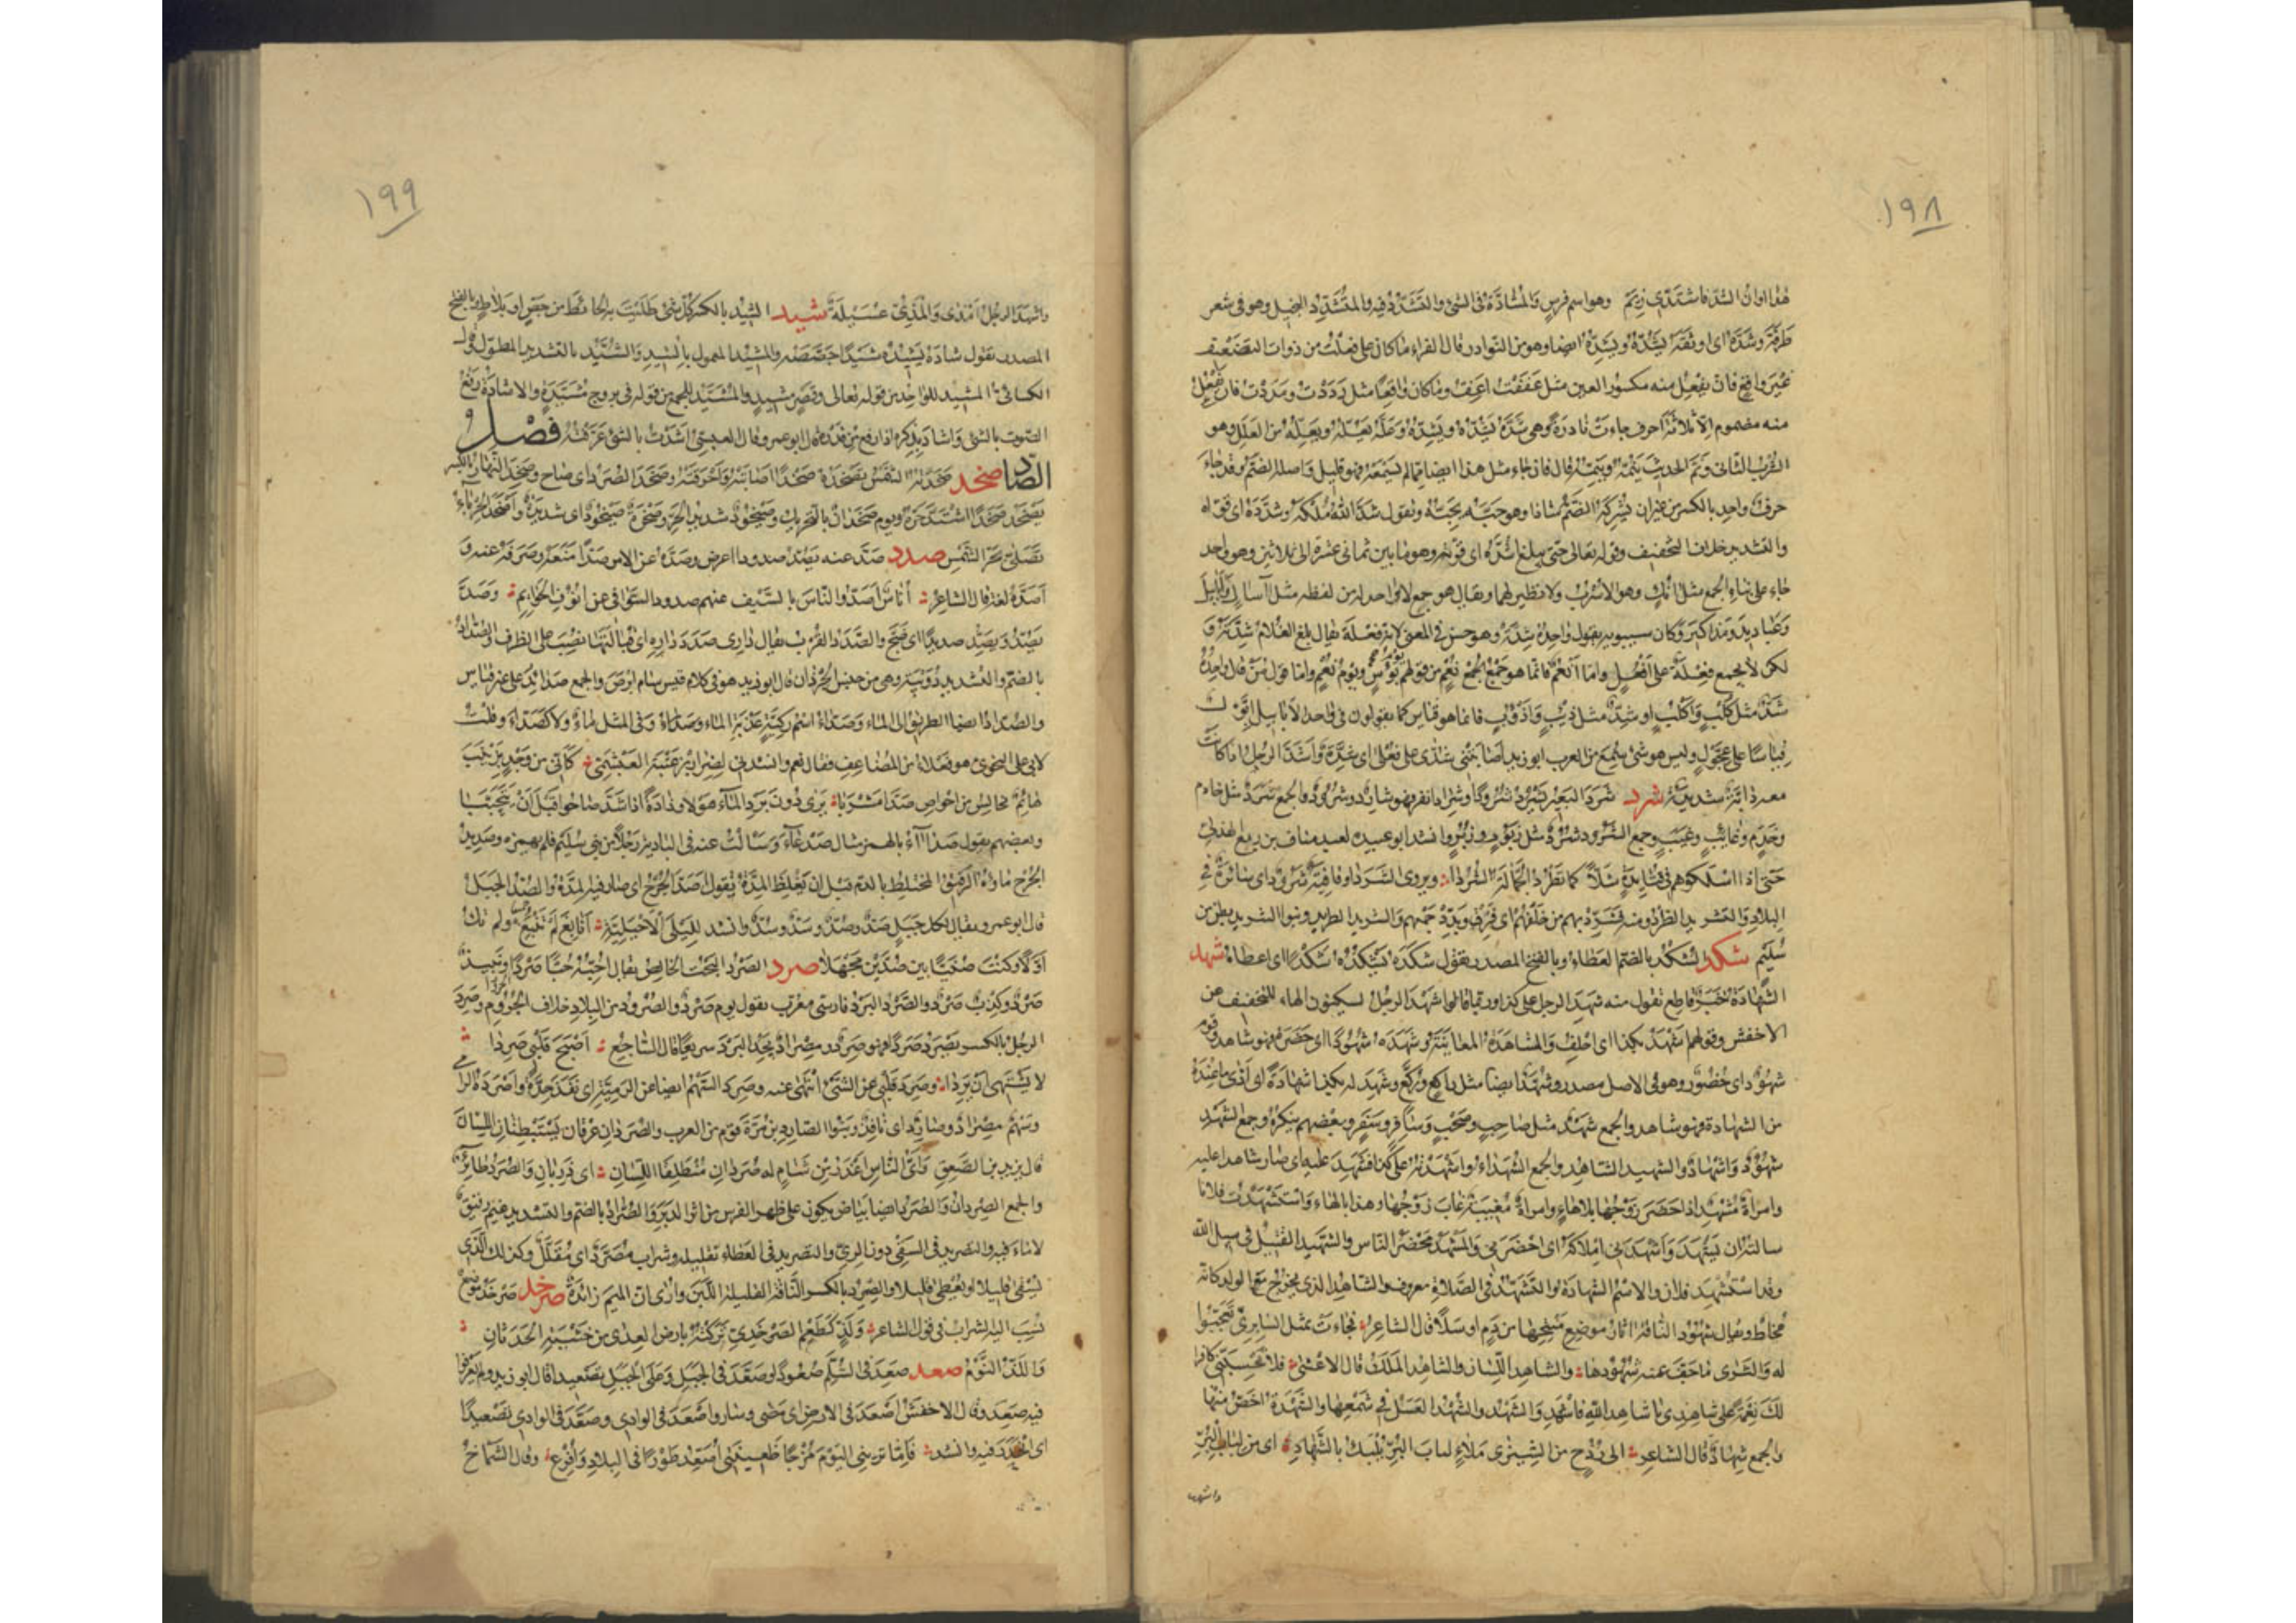 ١٩٨
هذا اوانُ الشدّ فاشتدّى زِيَمْ وهو اسم فرسٍ وَالْمُشادَّة فى الشئ والتَشَدُّدُ فيه والمتُشَدِّد البخيل وهو فى شعر
طَرَفَة وشَدَّهُ اى اوثقَهُ يَشُدّهُ ويَشِدّهُ ايضا وهو من النوادر قال الفراء ماكان على فَعَلْتُ من ذوات التضعيف
غَيرَ واقعٍ فان يفعِل منه مكسور العين مثل عَفَفْتُ اعِفّ وماكان واقعًا مثل رَدَدْتُ ومَدَدْتُ فان يَفعُل
منه مضموم الّا ثلاثة احرف جاءت نادرةً وهى شَدَّه يَشُدّه ويَشِدّه وعَلَّه يعُلّه ويعِلّه من العلل وهو
الشُرب الثانى ونَمَّ الحديثَ يَنُمّه وينِمّه قال فان جاء مثل هذا ايضا ممّا لم نسمعه فهو قليل واصله الضم وقد جاءَ
حرف واحد بالكسر من غير ان يَشركه الضَمّ شاذا وهو حبَّه يحِبّه وتقول شدَّ اللهُ مُلْكَهُ وشدَّدَهُ اى قوّاه
والتشديد خلاف التخفيف وقوله تعالى حتى يبلغ اشُدَّه اى قوّته وهو ما بين ثمانى عشرة الى ثلاثين وهو واحد
جاء على بناء الجمع مثل آنُكٍ وهو الاُسْرُبّ ولا نظير لهما ويقال هو جمع لا واحد له من لفظه مثل آسالٍ وابابيلَ
وعَبادِيدَ ومَذاكيرَ وكان سيبويه يقول واحِدُهُ شِدّة وهو حسن فى المعنى لانه يقال بلغ الغلام شِدّتَهُ و
لكن لا يجمع فِعْلة على اَفْعُلٍ واما اَنْعُمٌ فانّما هو جَمْعُ نُعْمٍ من قولهم يَوْمُ بُؤْسٍ ويومُ نُعْمٍ واما قول من قال واحِدُهُ
شَدّ مثل كَلْبٍ واَكْلُبٍ او شِدّ مثل ذِئْبٍ واَذْؤُبٍ فانما هو قياس كما يقولون فى واحد الابابيل اِبَّوْل
قياسًا على عِجَّوْلٍ وليس هو شئ سُمِعَ من العرب ابو زيد اصابتنى شُدَّى على فُعْلى اى شِدّة واَشَدَّ الرجُل اذا كانت
معه دابّة شديدة شرد شَرَدَ البَعيرُ يَشْرُدُ شُرُودًا وشِرادًا نفر فهو شارد وشَرُود والجمع شَرَد مثل خادم
وخَدَم وغائب وغَيَب وجمع الشَرُود شُرُد مثل زَبُور وزُبُر وانشد ابو عبيدة لعبد مناف بن ربع الهذلى
حتى اذا اسْلَكوهم فى قُتائِدَةٍ شَلًّا كما تَطْرُدُ الجَمّالَةُ الشُرُدا ؞ ويروى الشَرَدا وقافية شَرُود اى سائرة فى
البلاد والتشريد الطَرْد ومنه فشَرِّدْ بهم من خَلْفَهُم اى فرّق وبَدِّدْ جَمْعهم والشريد الطريد وبنو الشريد بطن من
سُلَيم شكد الشُكْد بالضم العطاء وبالفتح المصدر تقول شكَدَه يَشْكُدُه شَكْدًا اى اعطاه شهد
الشَهادَةُ خَبَر قاطع تقول منه شَهِدَ الرجل على كذا وربما قالوا شَهْدَ الرجُل بسكون الهاء للتخفيف عن
الاخفش وقولهم اشْهَدْ بكذا اى احْلِف والمشاهَدَة المعاينة وشَهِدَه شُهُودًا اى حَضَره فهو شاهد وقوم
شهُود اى حُضُور وهو فى الاصل مصدر وشُهَّد ايضا مثل راكع ورُكَّع وشَهِدَ له بكذا شهادَةً اى اَدّى ماعِنْدَهُ
من الشهادة فهو شاهد والجمع شَهْد مثل صاحِب وصَحْب وسافِر وسَفْر وبعضهم ينكره وجمع الشَهْد
شهُود واَشْهاد والشهيد الشاهِد والجمع الشهَداء واَشْهَدْتُه على كذا فشَهِدَ عَليه اى صار شاهدا عليه
وامراَة مُشْهِد اذا حَضَر زوْجُها بلا هاءٍ وامراَة مُغِيبَة غابَ زَوْجُها وهذا بالهاء واسْتَشْهَدْت فلانا
سالته ان يَشْهَد واَشْهَدَنى اِمْلاكَهُ اى احْضَرَنى والمَشْهَدُ مَحْضَرُ الناس والشَهيد القتيل فى سبيل الله
وقد استُشْهِدَ فلان والاسْمُ الشهادَة والتَشَهُّد فى الصَلاة معروف والشاهِد الذى يخرج مع الولد كانّه
مُخاط ويقال شُهُود الناقة آثار موضِع مَنْتِجها من دَمٍ او سَلًا قال الشاعر ؞ فجاءَت بمثل السابِرِىّ تَعَجَّبُوا
له والثَرَى ما جَفّ عنه شُهُودها ؞ والشاهِد اللِسان والشاهِد المَلَك قال الاعْشى ؞ فلا تَحْسِبَنّى كافرا
لَكَ نِعْمَةً على شاهِدى يا شاهِدَ اللهِ فاشْهَدِ والشَهْد والشُهْد العَسَل فى شَمَعِها والشُهْدَة اخَصّ منها
والجمع شِهاد قال الشاعر ؞ الى رُدُحٍ من الشِيزَى مِلاءٍ لُبابَ البُرِّ يُلْبَكُ بالشِهادِ ؞ اى من لباب البُرّ
واشهد
١٩٩
واشهَدَ الرجُل اَمْذَى والمَذْىُ عُسَيْلة شيد الشِيْد بالكسر كلّ شئ طَلَيْتَ به الحائط من جَصّ او بَلاط وبالفتح
المصدر تقول شادَهُ يَشيْدُه شَيْدًا جَصَّصَه والمَشيْد المعمول بالشِيد والمُشَيَّد بالتشديد المطوّل وقال
الكسائى المَشيْد للواحد من قوله تعالى وقَصْرٍ مَشيدٍ والمُشَيَّد للجمع من قوله فى بروج مُشَيَّدَةٍ والاشادَة رَفْعُ
الصَوت بالشئ واشادَ بذكره اذا رفع من قدره قال ابو عمرو وقال العبسى اَشَدْتُ بالشئ عَرَّفتُه فصل
الصاد صخد صَخَدَتْهُ الشَمْسُ تَصْخَدُه صَخْدًا اصابَتْه واَحْرَقَتْه وصَخَدَ الصُرَد اى صاح وصَخِدَ النَهارُ بالكسر
يَصْخَد صَخَدًا اشتَدّ حَرّهُ ويوم صَخَدان بالتحريك وصَيْخُود شديد الحَرّ وصَخْرَة صَيْخُود اى شديدَة واَصْخَدَ الحِرباء
تَصَلّى بحَرّ الشَمْس صدد صَدَّ عنه يَصِدّ صدودا اعرض وصَدَّه عن الامر صَدًّا مَنَعَه وصَرَفَه عنه و
اَصَدَّهُ لغة قال الشاعر ؞ اُناسٌ اَصَدّوا الناسَ بالسَيف عنهم صدودَ السَوَاقى عن اُنُوفِ الحَوَائِمِ ؞ وصَدّ
يَصُدّ ويَصِدّ صديدًا اى ضَجّ والصَدَد القُرْب يقال دارى صَدَدَ دارِه اى قُبالَتها نُصِبَ على الظرف والصُدّاد
بالضم والتشديد دُوَيْبَة وهى من جنس الجُرْذان قال ابو زيد هو فى كلام قيس سام ابْرَصَ والجمع صَدائِد على غير قياس
والصُدّاد ايضا الطريق الى الماء وصَدّاء اسم رَكِيّة عَذْبَة الماء وفى المثل ماءٌ ولا كصَدّاءَ وقلت
لابى على النحوى هو فعلاء من المُضاعف فقال نعم وانشدنى لضِرار بن عُتْبَة العَبْشَمىّ ؞ كَاَنّى من وَجْدٍ بزَيْنَبَ
هائِمٌ يخالِس من احْواض صَدّاءَ مَشْرَبا ؞ يَرَى دُونَ بَرْدِ الماءِ هَوْلًا وذادَةً اذا شَدَّ صاحُوا قَبْلَ اَنْ يَتَحَبَّبا
وبعضهم يقول صَدْآءُ بالهمز مثال صَدْعاءَ وسَالت عنه فى البادية رَجُلًا من بنى سُلَيم فلم يهمزه وصَدِيد
الجُرح ماؤه الرقيق المختلِط بالدم قبل ان تَغلظ المِدّة تقول اَصَدَّ الجُرْح اى صار فيه المِدّة والصُدّ الجبَل
قال ابو عمرو يقال لكل جَبَل صَدّ وصُدّ وسَدّ وسُدّ وانشد لليلى الاَخْيَلِيّة ؞ اَنابِغَ لَمْ تَنْبُغْ ولم تك
اَوّلًا وكنتَ صُنَيًّا بين صُدَّيْن مَجْهَلا صرد الصَرْد البَحْت الخالِص يقال اُحِبّهُ حُبًّا صَرْدًا ونَبيذ
صَرْد وكَذِب صَرْد والصَرْد البَرْد فارسى معرّب تقول يوم صَرْد والصُرُود من البِلاد خلاف الجُرُوم وصَرِدَ
الرجُل بالكسر يَصْرَد صَرَدًا فهو صَرِد ومِصْراد يَجِد البَرْد سريعا قال الساجع ؞ اَصْبَحَ قَلْبى صَرِدا ؞
لا يَشْتَهى اَن يَرِدا ؞ وصَرِدَ قَلْبى عن الشئ انتهَى عنه وصَرِد السَهْم ايضا عن الرَمِيّة اى نَفَذ حَدّهُ واَصْرَدَه الرامى
وسَهْم مِصْراد وصارِد اى نافِذ وبَنو الصارِد بن مُرّة قوم من العرب والصُرَدانِ عِرْقان يَسْتَبْطِنان اللِسان
قال يزيد بن الصَعِق واَىّ الناس اَغْدَر من شآمٍ له صُرَدانِ مُنْطَلِقا اللِسان ؞ اى ذَرِبانِ والصُرَد طائِر
والجمع الصِرْدانُ والصُرَد ايضا بَياض يكون على ظهر الفرس من اثر الدَبَر والصُرّاد بالضم والتشديد غَيم رقيق
لاماءَ فيه والتَصريد فى السَقى دون الرِىّ والتصريد فى العطاء تقليله وشراب مُصَرَّد اى مُقَلَّل وكذلك الذى
يُسْقى قليلا او يُعْطى قليلا والصِمْرِد بالكسر الناقة القليلة اللَبن واُرَى انّ الميم زائدة صرخد صَرْخَد موضِع
نُسِبَ اليه الشراب فى قول الشاعر ؞ ولَذٍّ كطَعْم الصَرْخَدِىّ تَرَكتُه بارض العِدى من خَشْيَة الحَدَثانِ ؞
وَاللَذّ النَّوْم صعد صَعِدَ فى السُلّم صُعُودًا وصَعَّدَ فى الجبَل وعَلى الجَبَل تَصْعيدا قال ابو زيد ولم يعرفوا
فيه صعِدَ وقال الاخفش اَصْعَدَ فى الارض اى مَضى وسار واَصْعَدَ فى الوادى وصَعَّد فى الوادى تَصْعيدًا
اى انْحَدَرَ فيه وانشد ؞ فَاِمّا تَرَيْنى اليَوْمَ مُزْجًا ظَعينَتى اُصَعِّد طَوْرًا فى البِلاد واُفْرِع ؞ وقال الشمّاخ